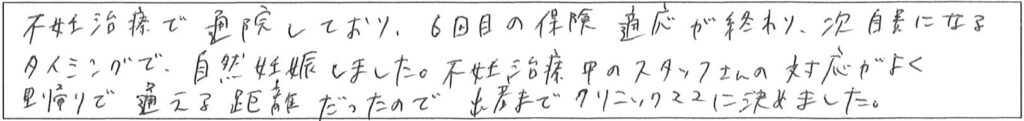 不妊治療で通院しており、6回目の保険適応が終わり、次自費になる
タイミングで、自然妊娠しました。不妊治療中のスタッフさんの対応がよく
里帰りで通える距離だったので出産までクリニックここに決めました。